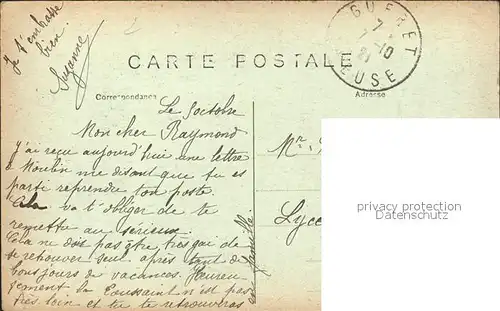 Je t'embrasse
bien
Suzanne
GUERET
7
7-10
21
EUSE
CARTE POSTALE
Correspondance
Adresse
Le 5 octobre
Mon cher Raymond
J'ai reçu aujourd'hui une lettre
à Moulin me disant que tu es
parti reprendre ton poste.
Cela va t'obliger de te
remettre au sérieux.
Cela ne dois pas être très gai de
se retrouver seul après tant de
bons jours de vacances. Heureu
sement la Toussaint n'est pas
très loin et tu te retrouveras
en famille
Mr.
Lyce
privacy protection
Datenschutz